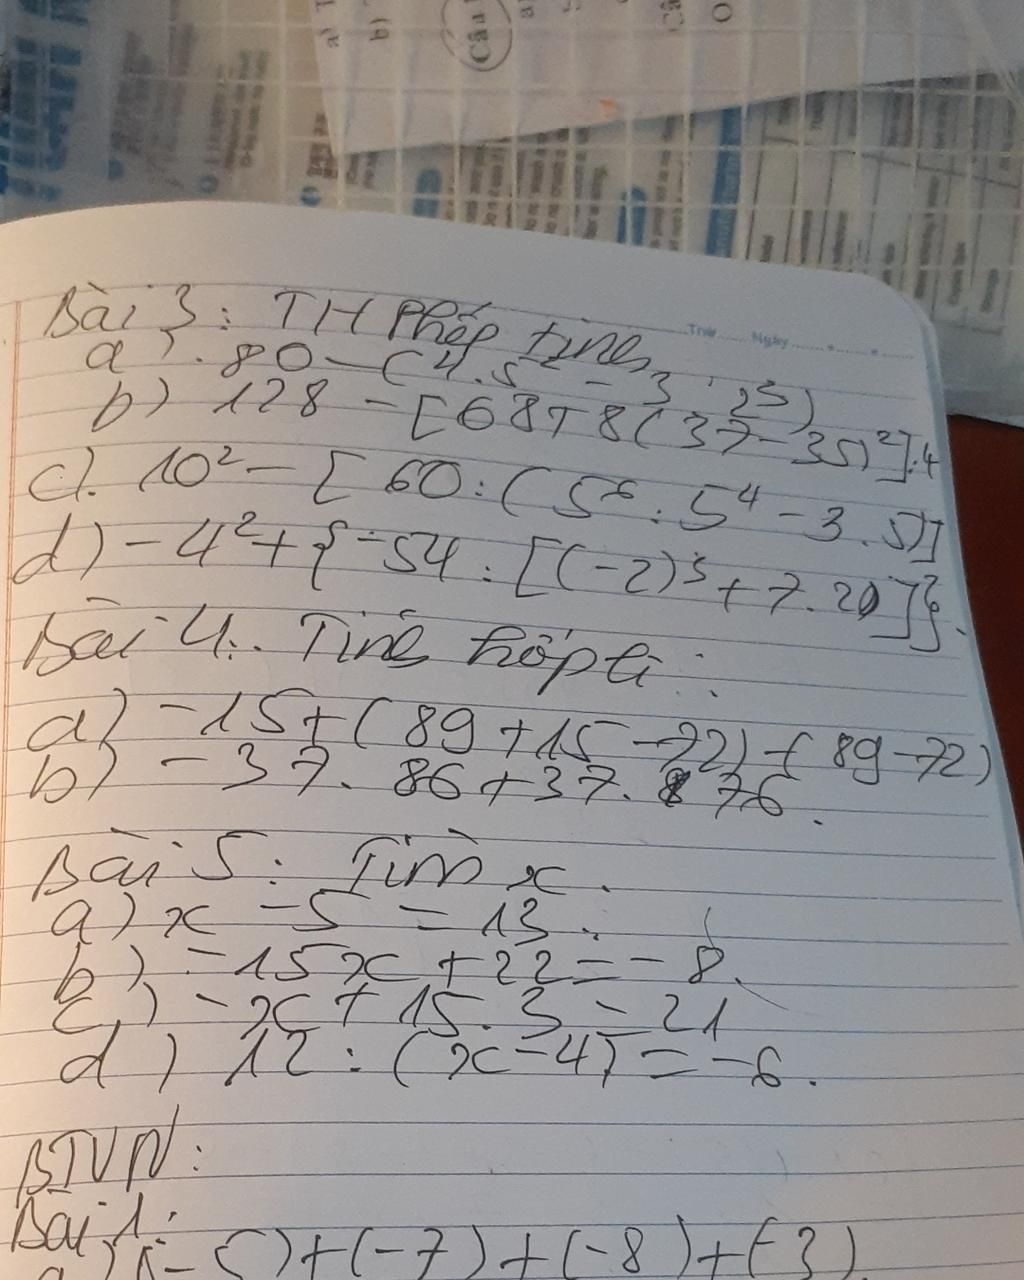 a)
b)
Câu
Thứ ..... Ngày
Bài 3: TH Phép tính
a). 80 - (4.5² - 3.2³)
b) 128 - [68+8(37-35)²]:4
c). 10² - [60:(5⁶:5⁴-3.5)]
d) -4²+{-54:[(-2)³+7.20]}.
Bài 4: Tính hợp lí:
a) -15+(89+15-72)-(89-72)
b) -37.86+37.76.
Bài 5: Tìm x.
a) x - 5 = 13.
b) -15x + 22 = - 8.
c) - x + 15.3 = 21
d) 12 : (x-4) = -6.
BTVN:
Bài 1:
a) (-5)+(-7)+(-8)+(-3)